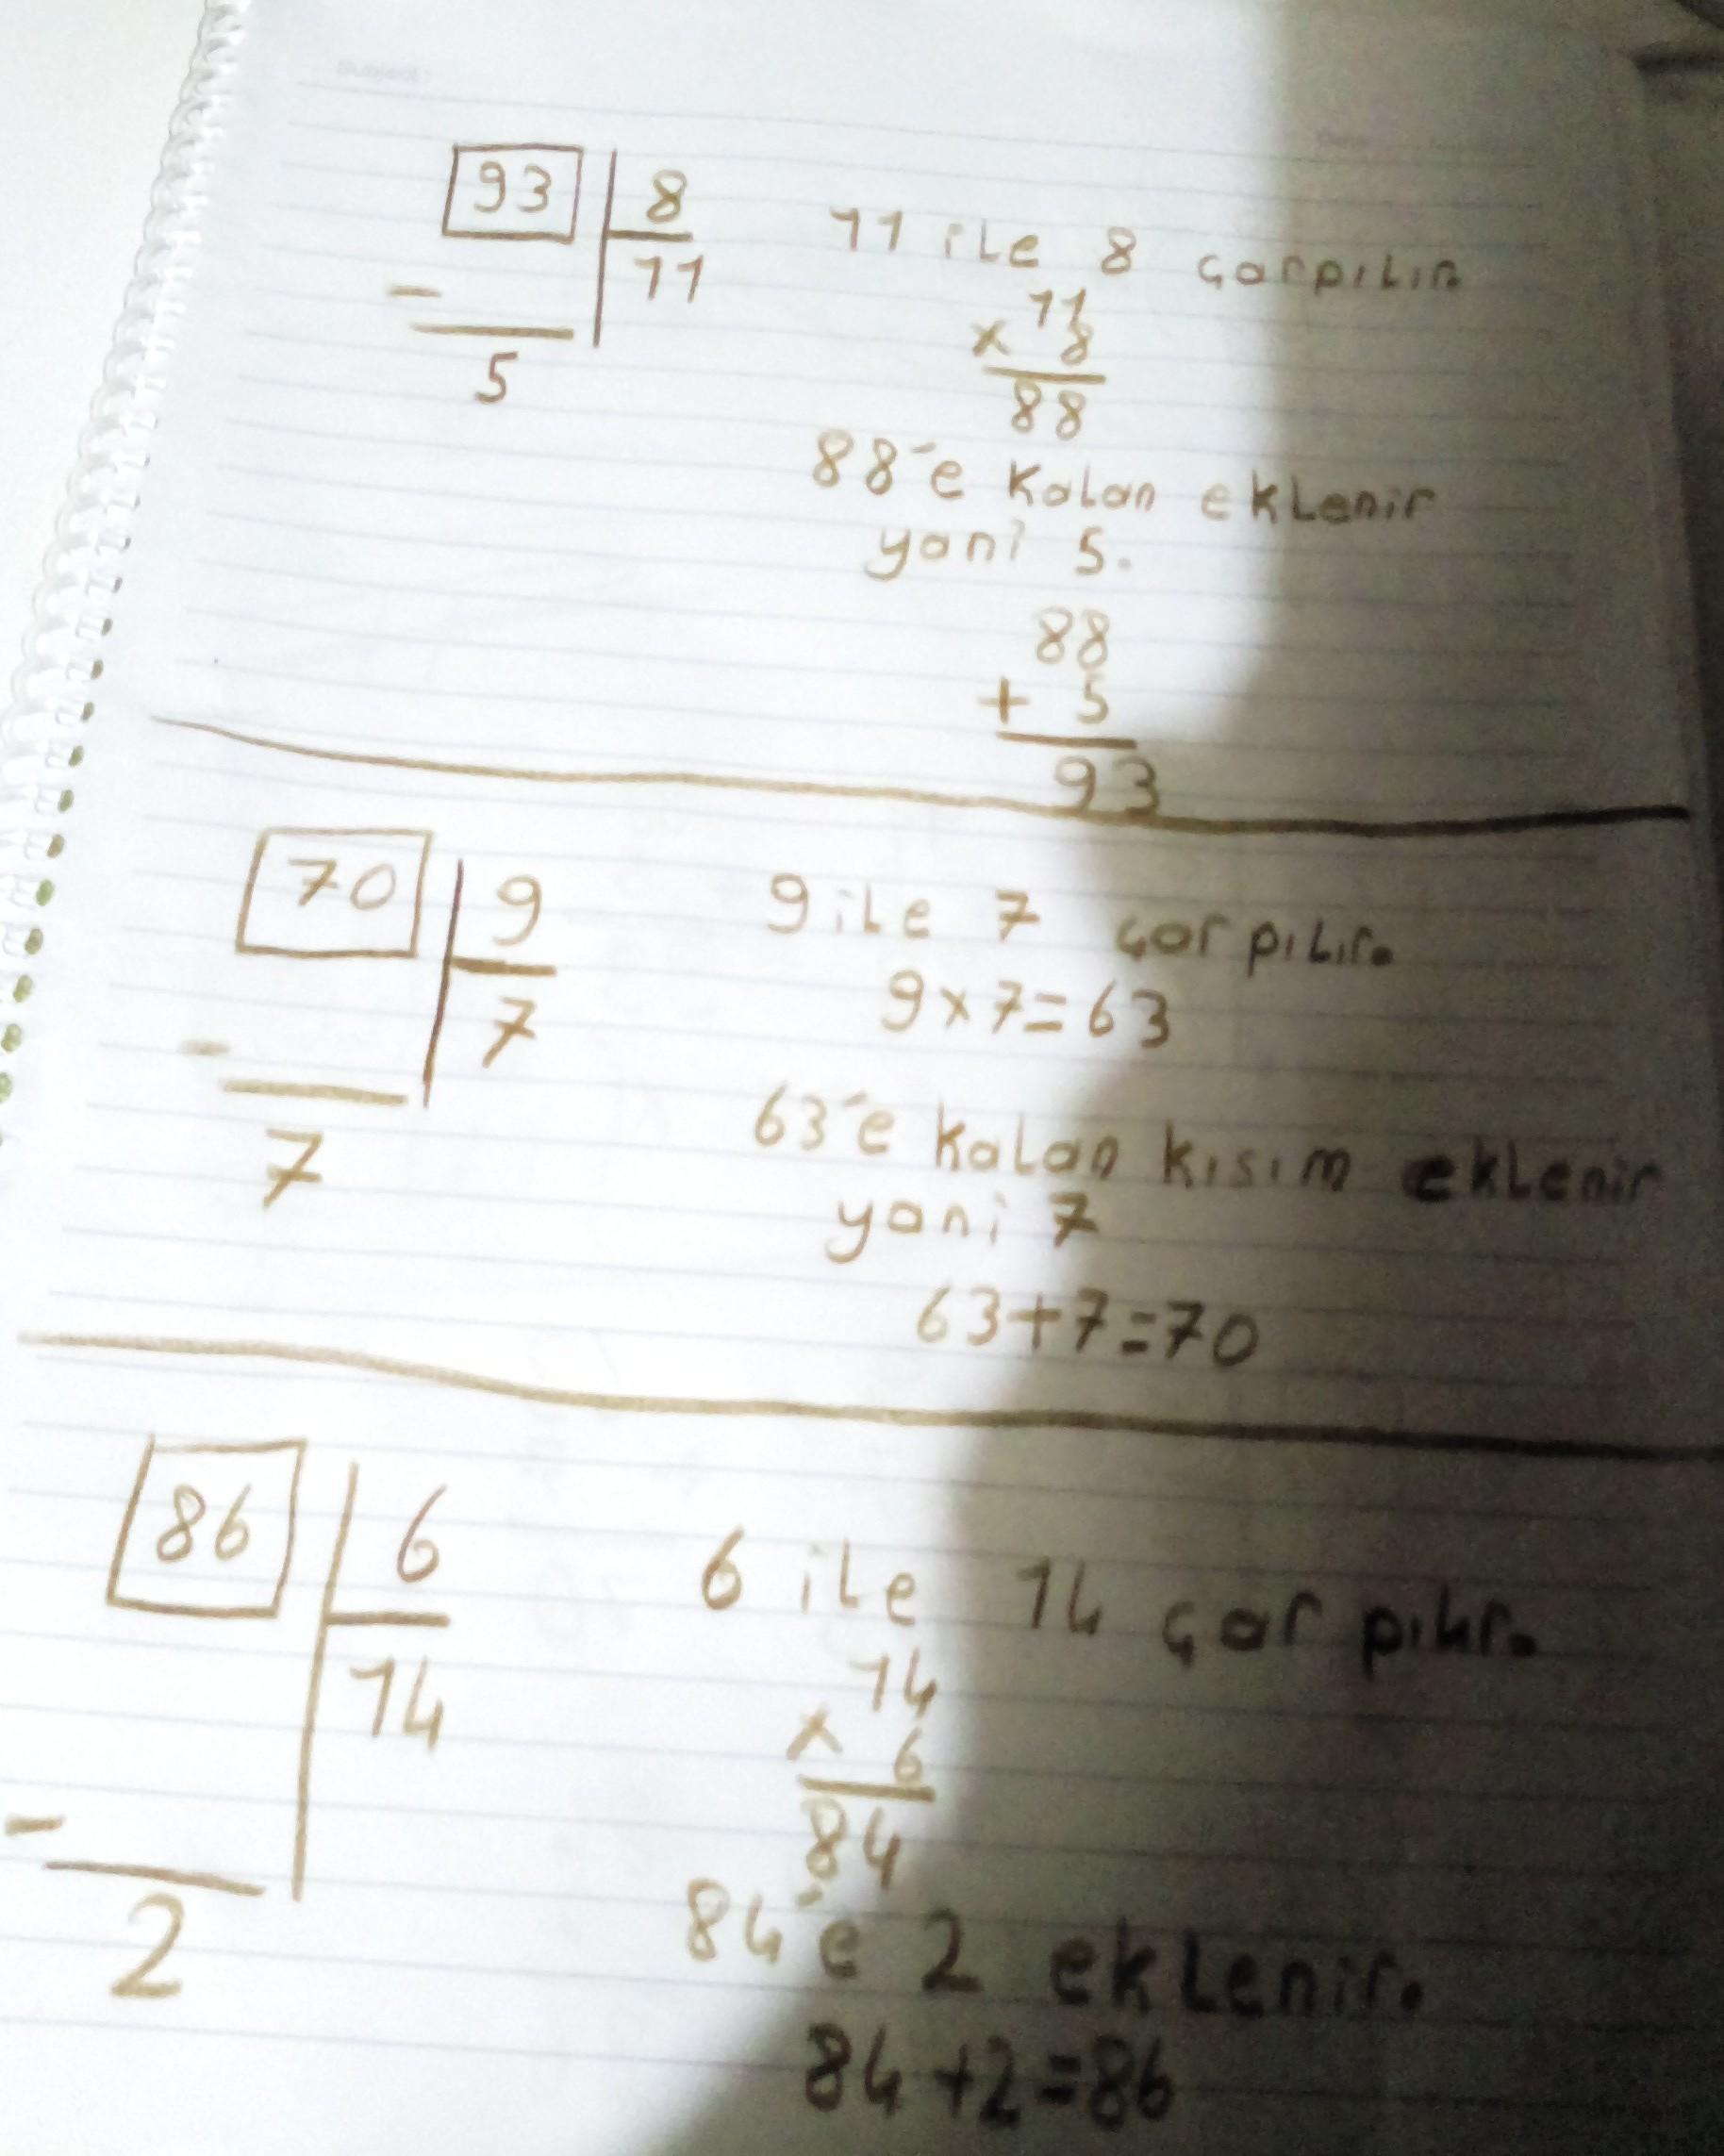 Subject:
93 8
11
-
5
11 ile 8 çarpılır.
11
x 8
88
88'e kalan eklenir
yani 5.
88
+ 5
93
70 9
7
-
7
9 ile 7 çarpılır.
9x7=63
63'e kalan kısım eklenir
yani 7
63+7=70
86 6
14
-
2
6 ile 14 çarpılır.
14
x 6
84
84'e 2 eklenir.
84+2=86